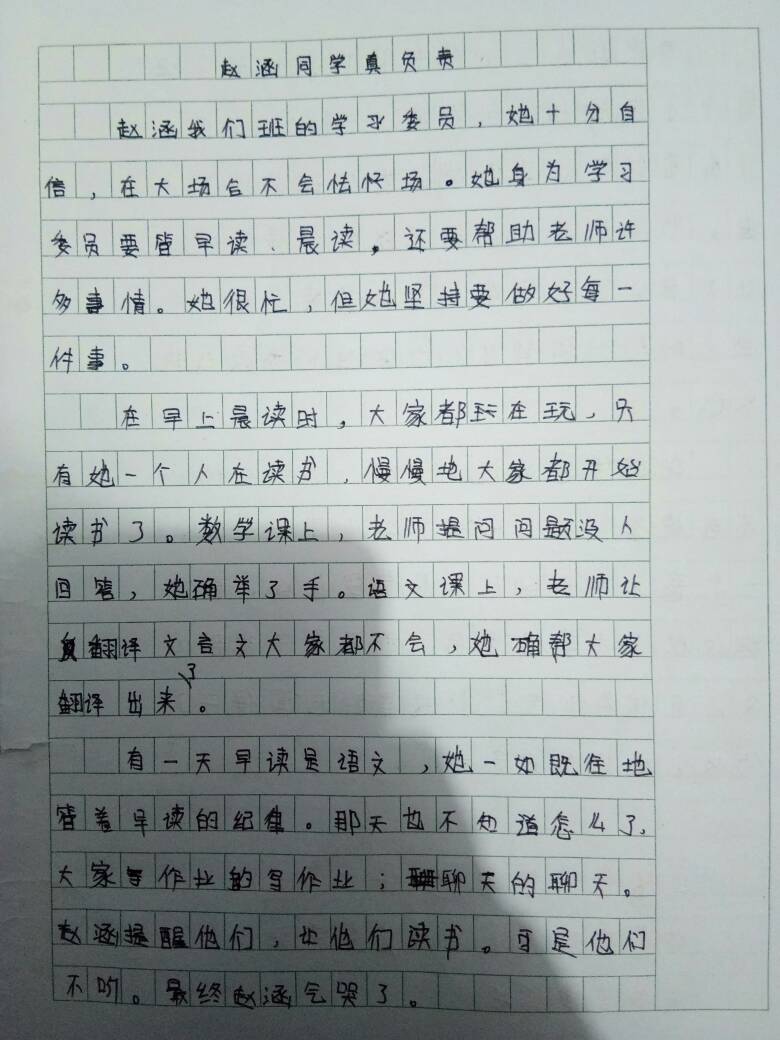 赵涵同学真负责
赵涵我们班的学习委员，她十分自
信，在大场合不会怯怀场。她身为学习
委员要管早读、晨读，还要帮助老师许
多事情。她很忙，但她坚持要做好每一
件事。
在早上晨读时，大家都玩在玩，只
有她一个人在读书，慢慢地大家都开始
读书了。数学课上，老师提问问题没人
回答，她确举了手。语文课上，老师让
翻译文言文大家都不会，她确帮大家
翻译出来了。
有一天早读是语文，她一如既往地
管着早读的纪律。那天也不知道怎么了，
大家写作业的写作业；聊天的聊天。
赵涵提醒他们，让他们读书。可是他们
不听。最终赵涵气哭了。